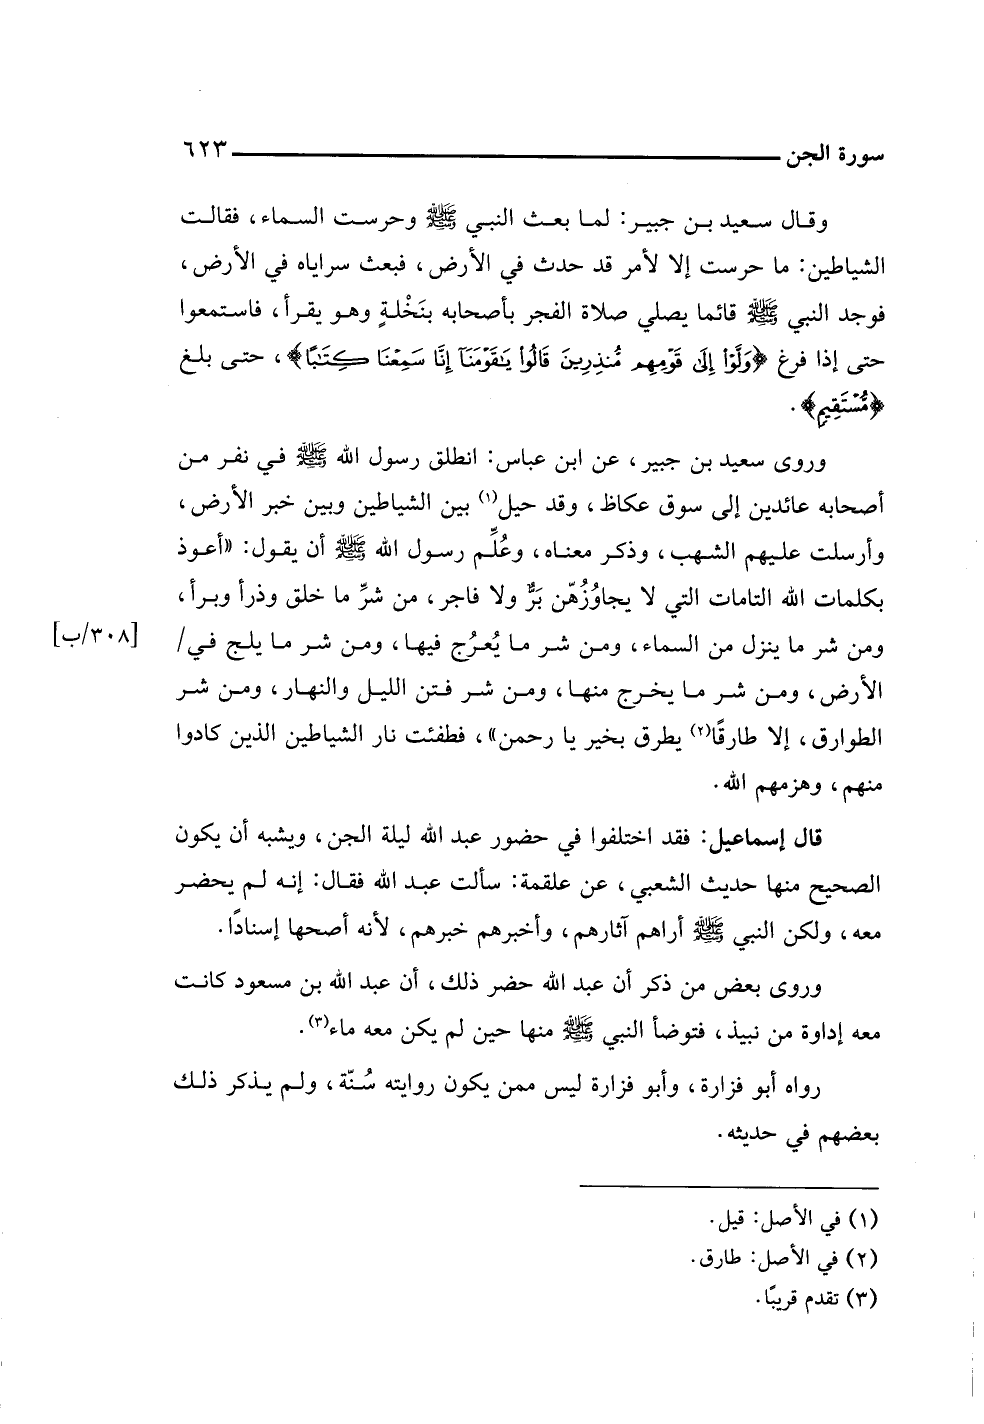 سورة الجن ٦٢٣
وقال سعيد بن جبير: لما بعث النبي ﷺ وحرست السماء، فقالت
الشياطين: ما حرست إلا لأمر قد حدث في الأرض، فبعث سراياه في الأرض،
فوجد النبي ﷺ قائما يصلي صلاة الفجر بأصحابه بنَخْلةٍ وهو يقرأ، فاستمعوا
حتى إذا فرغ ﴿وَلَّوۡاْ إِلَىٰ قَوۡمِهِم مُّنذِرِينَ قَالُواْ يَٰقَوۡمَنَآ إِنَّا سَمِعۡنَا كِتَٰبًا﴾، حتى بلغ
﴿مُّسۡتَقِيمٖ﴾.
وروى سعيد بن جبير، عن ابن عباس: انطلق رسول الله ﷺ في نفر من
أصحابه عائدين إلى سوق عكاظ، وقد حيل(١) بين الشياطين وبين خبر الأرض،
وأرسلت عليهم الشهب، وذكر معناه، وعُلِّم رسول الله ﷺ أن يقول: «أعوذ
بكلمات الله التامات التي لا يجاوُزُهّن بَرٌّ ولا فاجر، من شرِّ ما خلق وذرأ وبرأ،
ومن شر ما ينزل من السماء، ومن شر ما يُعرُج فيها، ومن شر ما يلج في/ [٣٠٨/ب]
الأرض، ومن شر ما يخرج منها، ومن شر فتن الليل والنهار، ومن شر
الطوارق، إلا طارقًا(٢) يطرق بخير يا رحمن»، فطفئت نار الشياطين الذين كادوا
منهم، وهزمهم الله.
قال إسماعيل: فقد اختلفوا في حضور عبد الله ليلة الجن، ويشبه أن يكون
الصحيح منها حديث الشعبي، عن علقمة: سألت عبد الله فقال: إنه لم يحضر
معه، ولكن النبي ﷺ أراهم آثارهم، وأخبرهم خبرهم، لأنه أصحها إسنادًا.
وروى بعض من ذكر أن عبد الله حضر ذلك، أن عبد الله بن مسعود كانت
معه إداوة من نبيذ، فتوضأ النبي ﷺ منها حين لم يكن معه ماء(٣).
رواه أبو فزارة، وأبو فزارة ليس ممن يكون روايته سُنّة، ولم يذكر ذلك
بعضهم في حديثه.
(١) في الأصل: قيل.
(٢) في الأصل: طارق.
(٣) تقدم قريبًا.